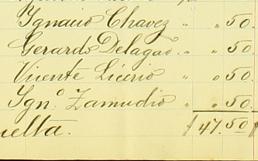 Ignacio Chavez " " 50.
Gerardo Delagao " " 50.
Vicente Licerio " " 50.
Ign.º Zamudio " " 50.
uelta. $47.50